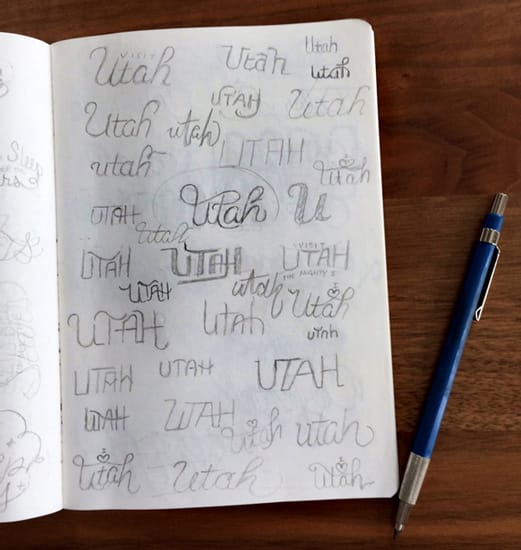 VISIT
Utah
Utah
Utah
utah
UTAH
Utah
Utah
utah
UTAH
utah
Utah
Utah
u
UTAH
Utah
UTAH
UTAH
VISIT
UTAH
THE MIGHTY 5
UTAH
utah
Utah
UTAH
UTAH
utah
UTAH
UTAH
UTAH
UTAH
UTAH
Utah
utah
Utah
Utah
Utah
Sleep